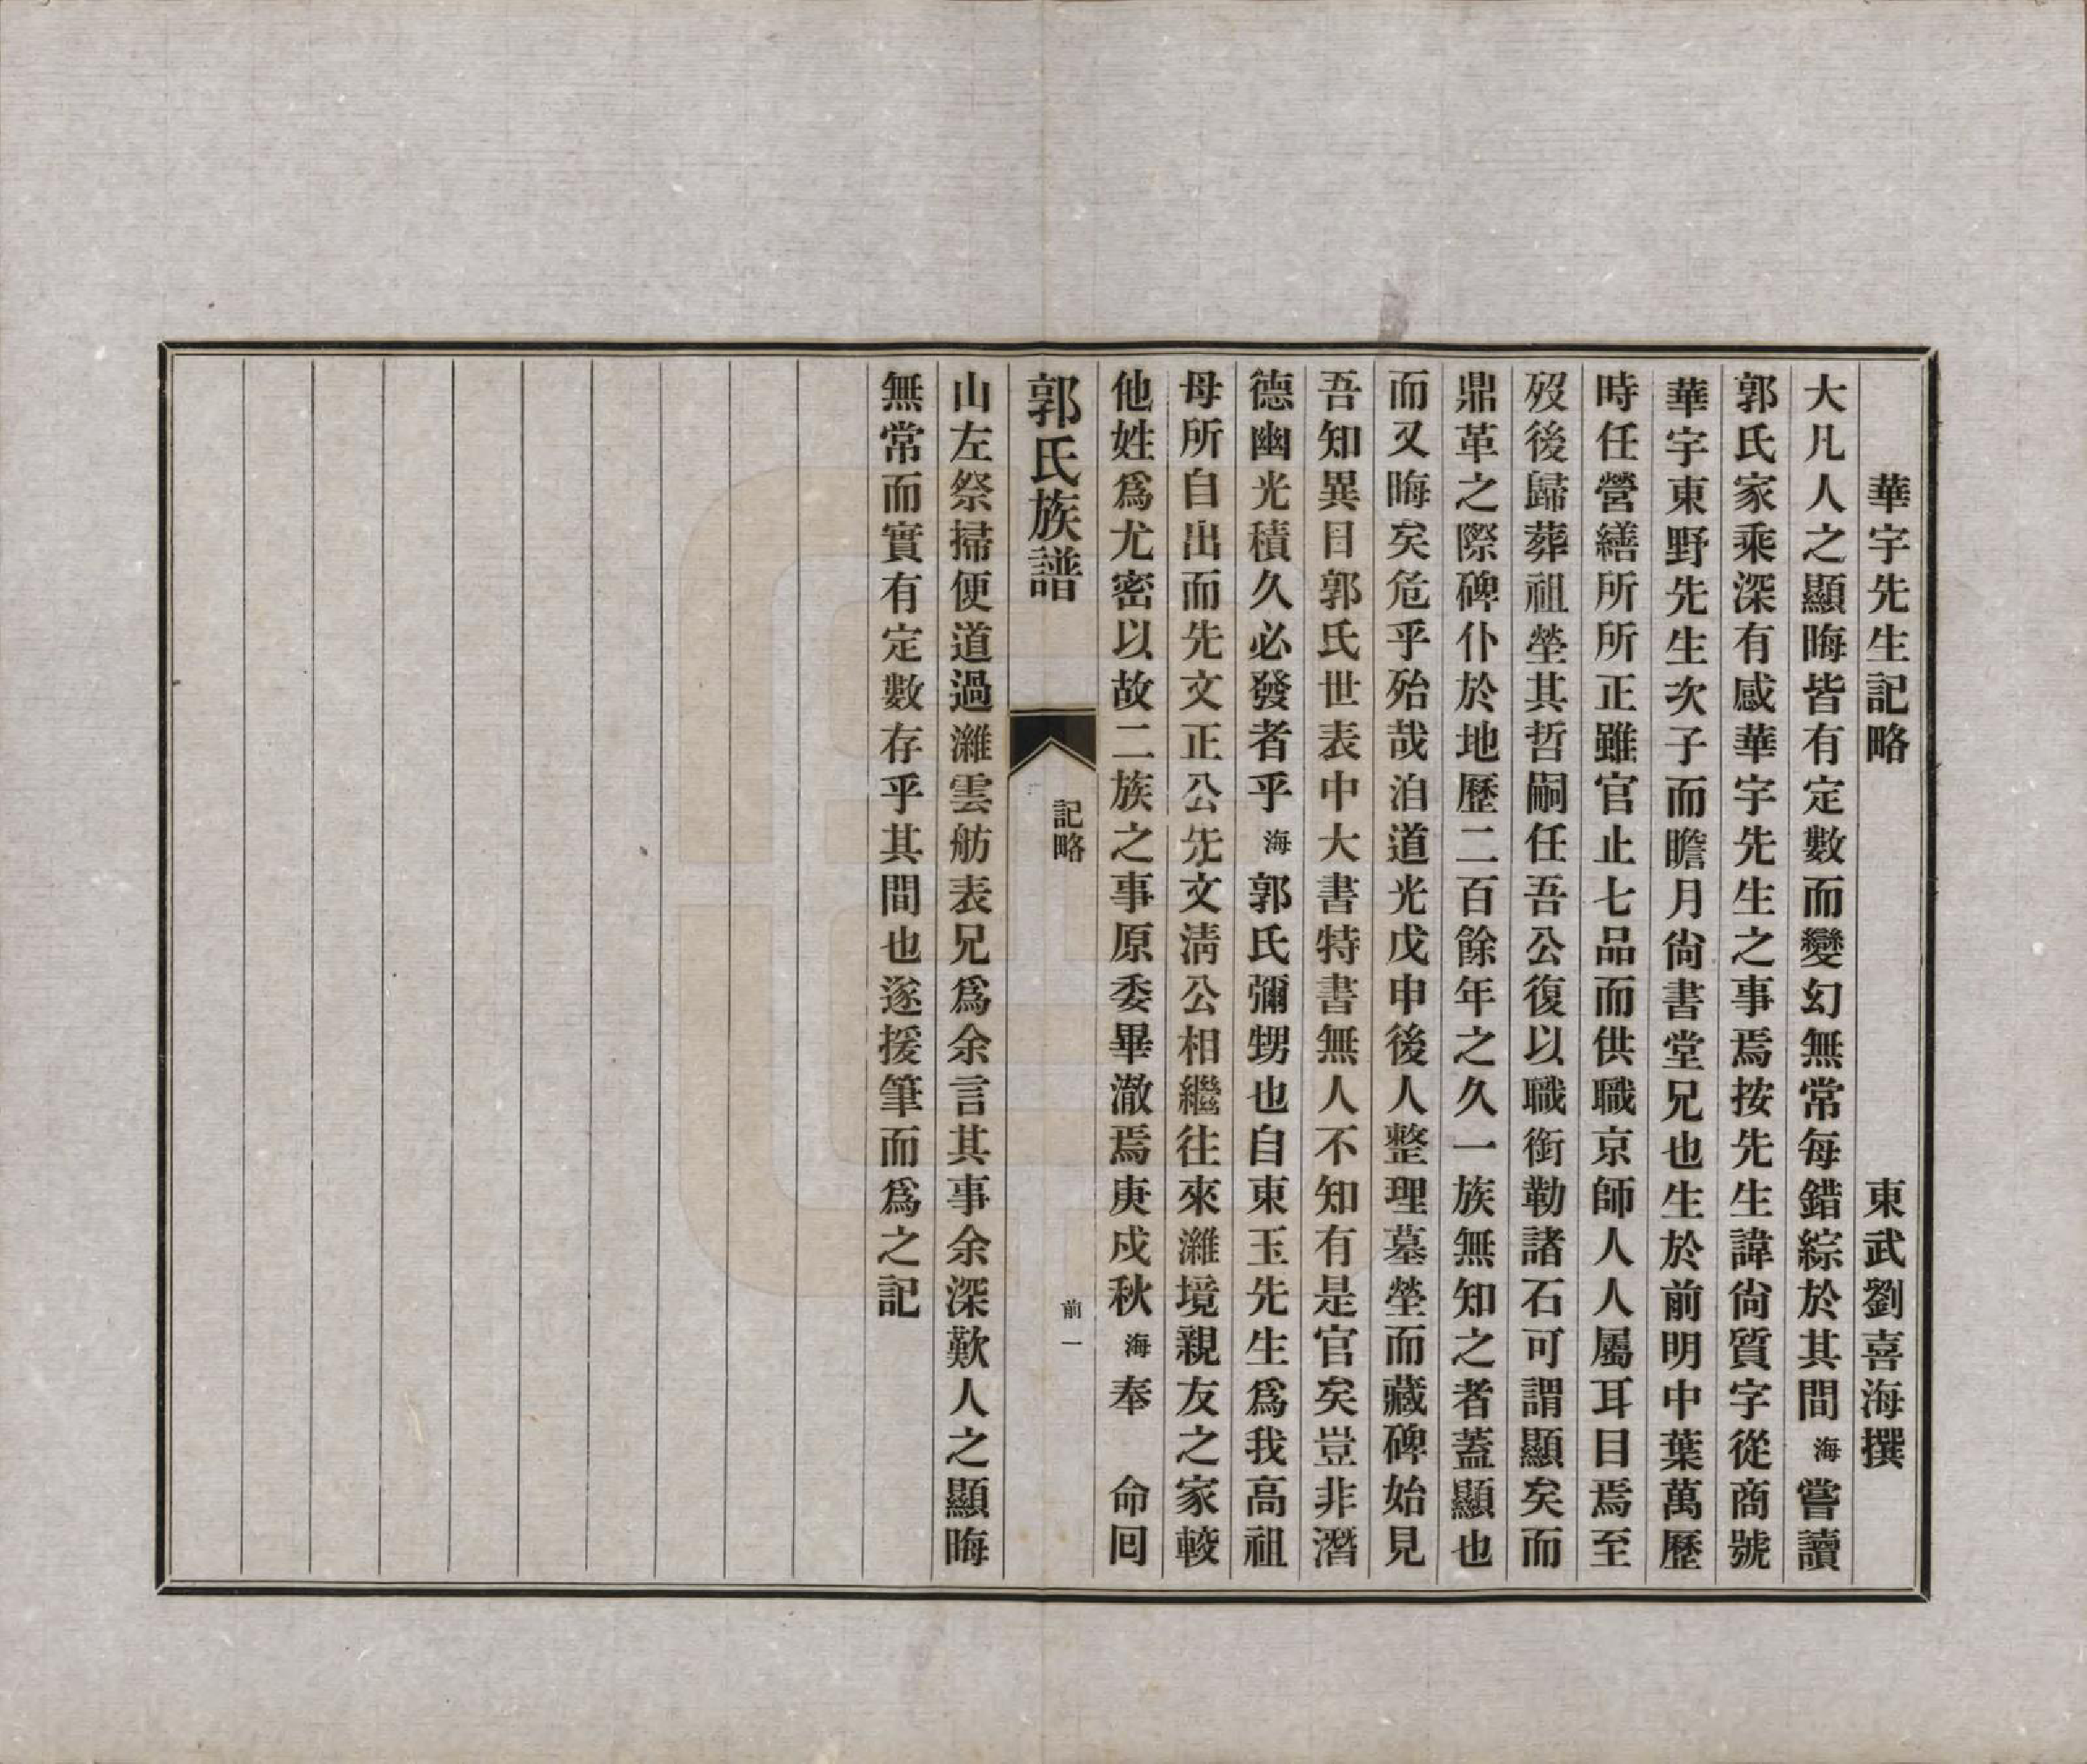 華宇先生記略　東武劉喜海撰
大凡人之顯晦皆有定數而變幻無常每錯綜於其間海嘗讀
郭氏家乘深有感華宇先生之事焉按先生諱尙質字從商號
華宇東野先生次子而瞻月尙書堂兄也生於前明中葉萬歷
時任營繕所所正雖官止七品而供職京師人人屬耳目焉至
歿後歸葬祖塋其哲嗣任吾公復以職銜勒諸石可謂顯矣而
鼎革之際碑仆於地歷二百餘年之久一族無知之者蓋顯也
而又晦矣危乎殆哉洎道光戊申後人整理墓塋而藏碑始見
吾知異目郭氏世表中大書特書無人不知有是官矣豈非潛
德幽光積久必發者乎海郭氏彌甥也自東玉先生爲我高祖
母所自出而先文正公先文淸公相繼往來濰境親友之家較
他姓爲尤密以故二族之事原委畢澈焉庚戌秋海奉　命回
郭氏族譜　記略　前一
山左祭掃便道過濰雲舫表兄爲余言其事余深歎人之顯晦
無常而實有定數存乎其間也遂援筆而爲之記